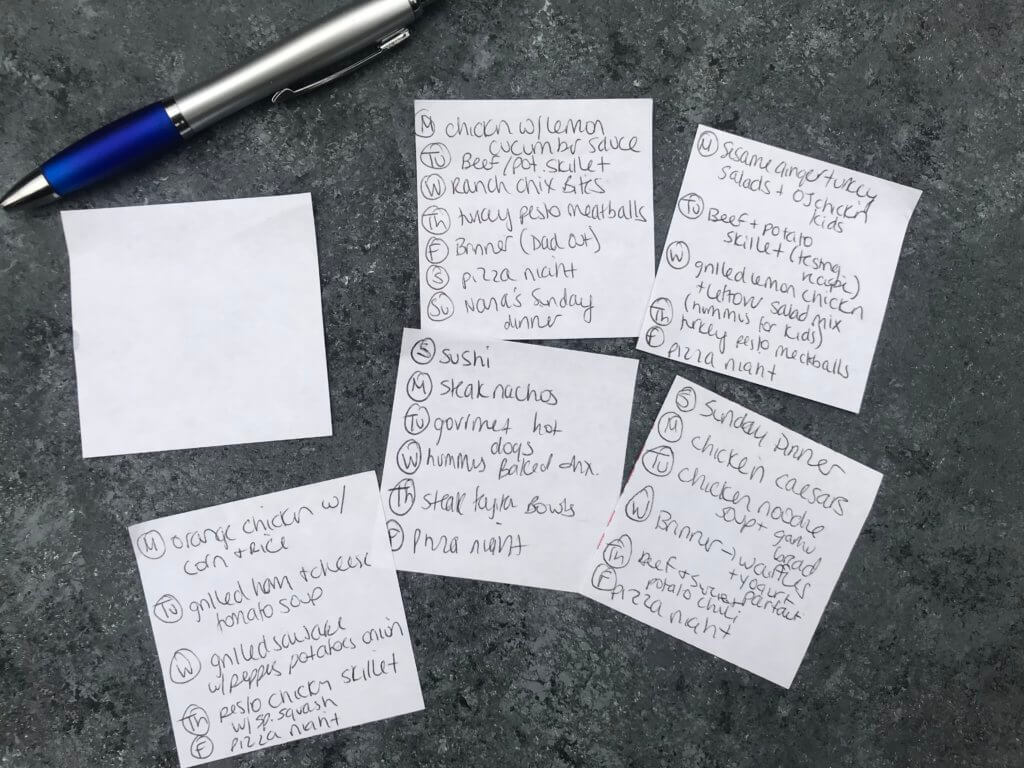 M chickn w/lemon
cucumber sauce
Tu Beef/pot. skillet
W Ranch chix Bites
Th turkey pesto meatballs
F Brinner (Dad out)
S pizza night
Su Nana's Sunday
dinner
M Sesame ginger turkey
salads + OJ chickn
kids
Tu Beef + potato
skillet (testing
recipe)
W grilled lemon chicken
+ leftover salad mix
(hummus for kids)
Th turkey pesto meatballs
F pizza night
S sushi
M steak nachos
Tu gourmet hot
dogs
W hummus Baked chx.
Th steak fajita Bowls
F pizza night
S Sunday Dinner
M chicken caesars
Tu chicken noodle
soup +
bread
W Brinner → waffles
+ yogurt
parfait
Th Beef + sweet
potato chili
F pizza night
M orange chickn w/
corn + rice
Tu grilled ham + cheese
tomato soup
W grilled sausage
w/ peppers, potatoes onion
Th pesto chicken skillet
w/ sp. squash
F pizza night